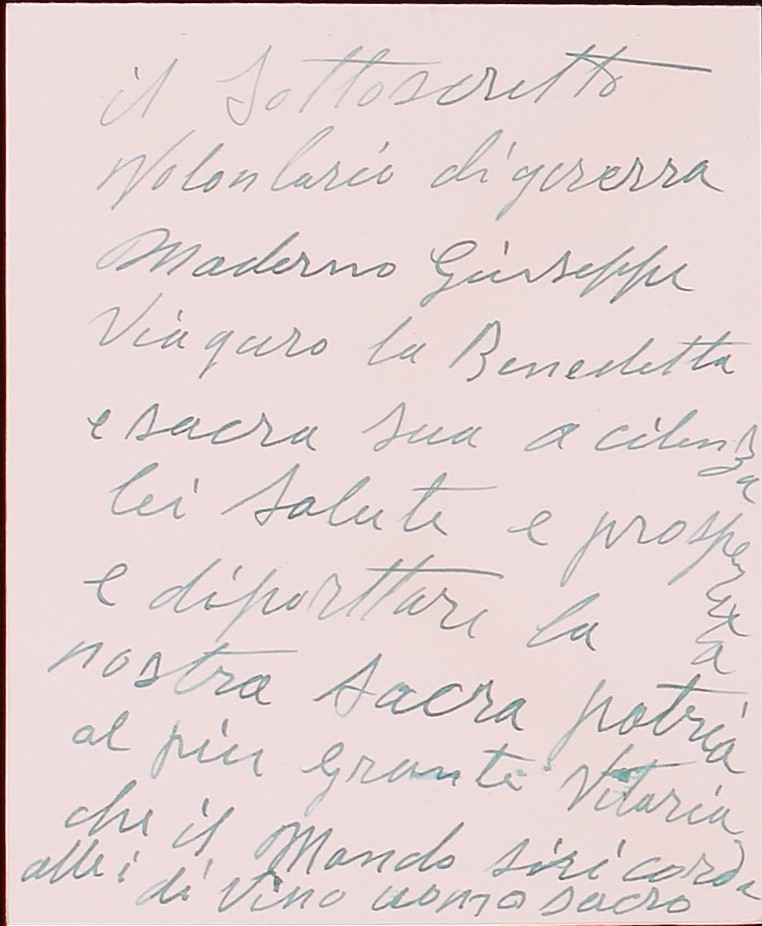 il Sottoscritto
Wolontario di guerra
Maderno Giuseppe
Viaguro la Benedetta
e sacra sua a cilenza
lei salute e prosperita
e diporttare la
nostra sacra patria
al piu grante Vitaria
che il Mondo siricorda
allei di vino uomo sacro